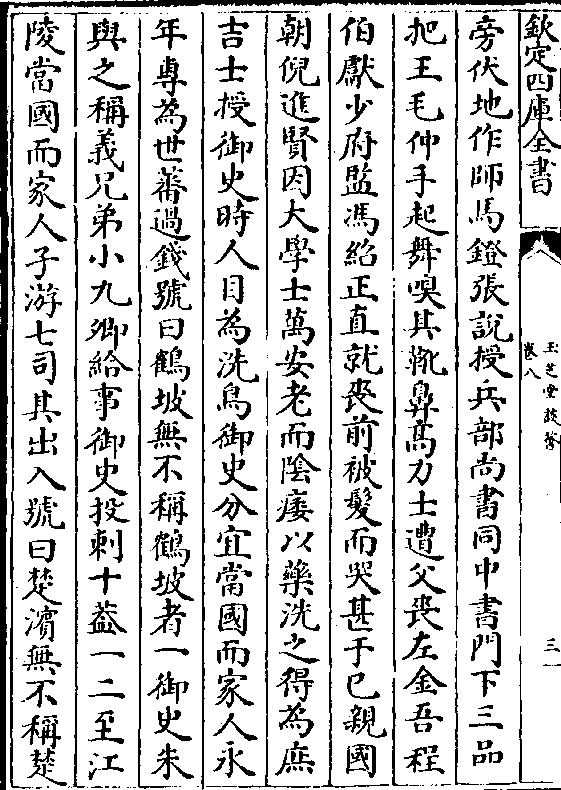 欽定四庫全書
玉芝堂談薈
卷八
三
旁伏地作師馬鐙張說授兵部尚書同中書門下三品
把王毛仲手起舞嗅其靴鼻高力士遭父喪左金吾程
伯獻少府監馮紹正直就喪前被髮而哭甚于已親國
朝倪進賢因大學士萬安老而陰痿以藥洗之得為庶
吉士授御史時人目為洗鳥御史分宜當國而家人永
年專為世蕃過錢號曰鶴坡無不稱鶴坡者一御史朱
與之稱義兄弟小九卿給事御史投刺十葢一二至江
陵當國而家人子游七司其出入號曰楚濱無不稱楚